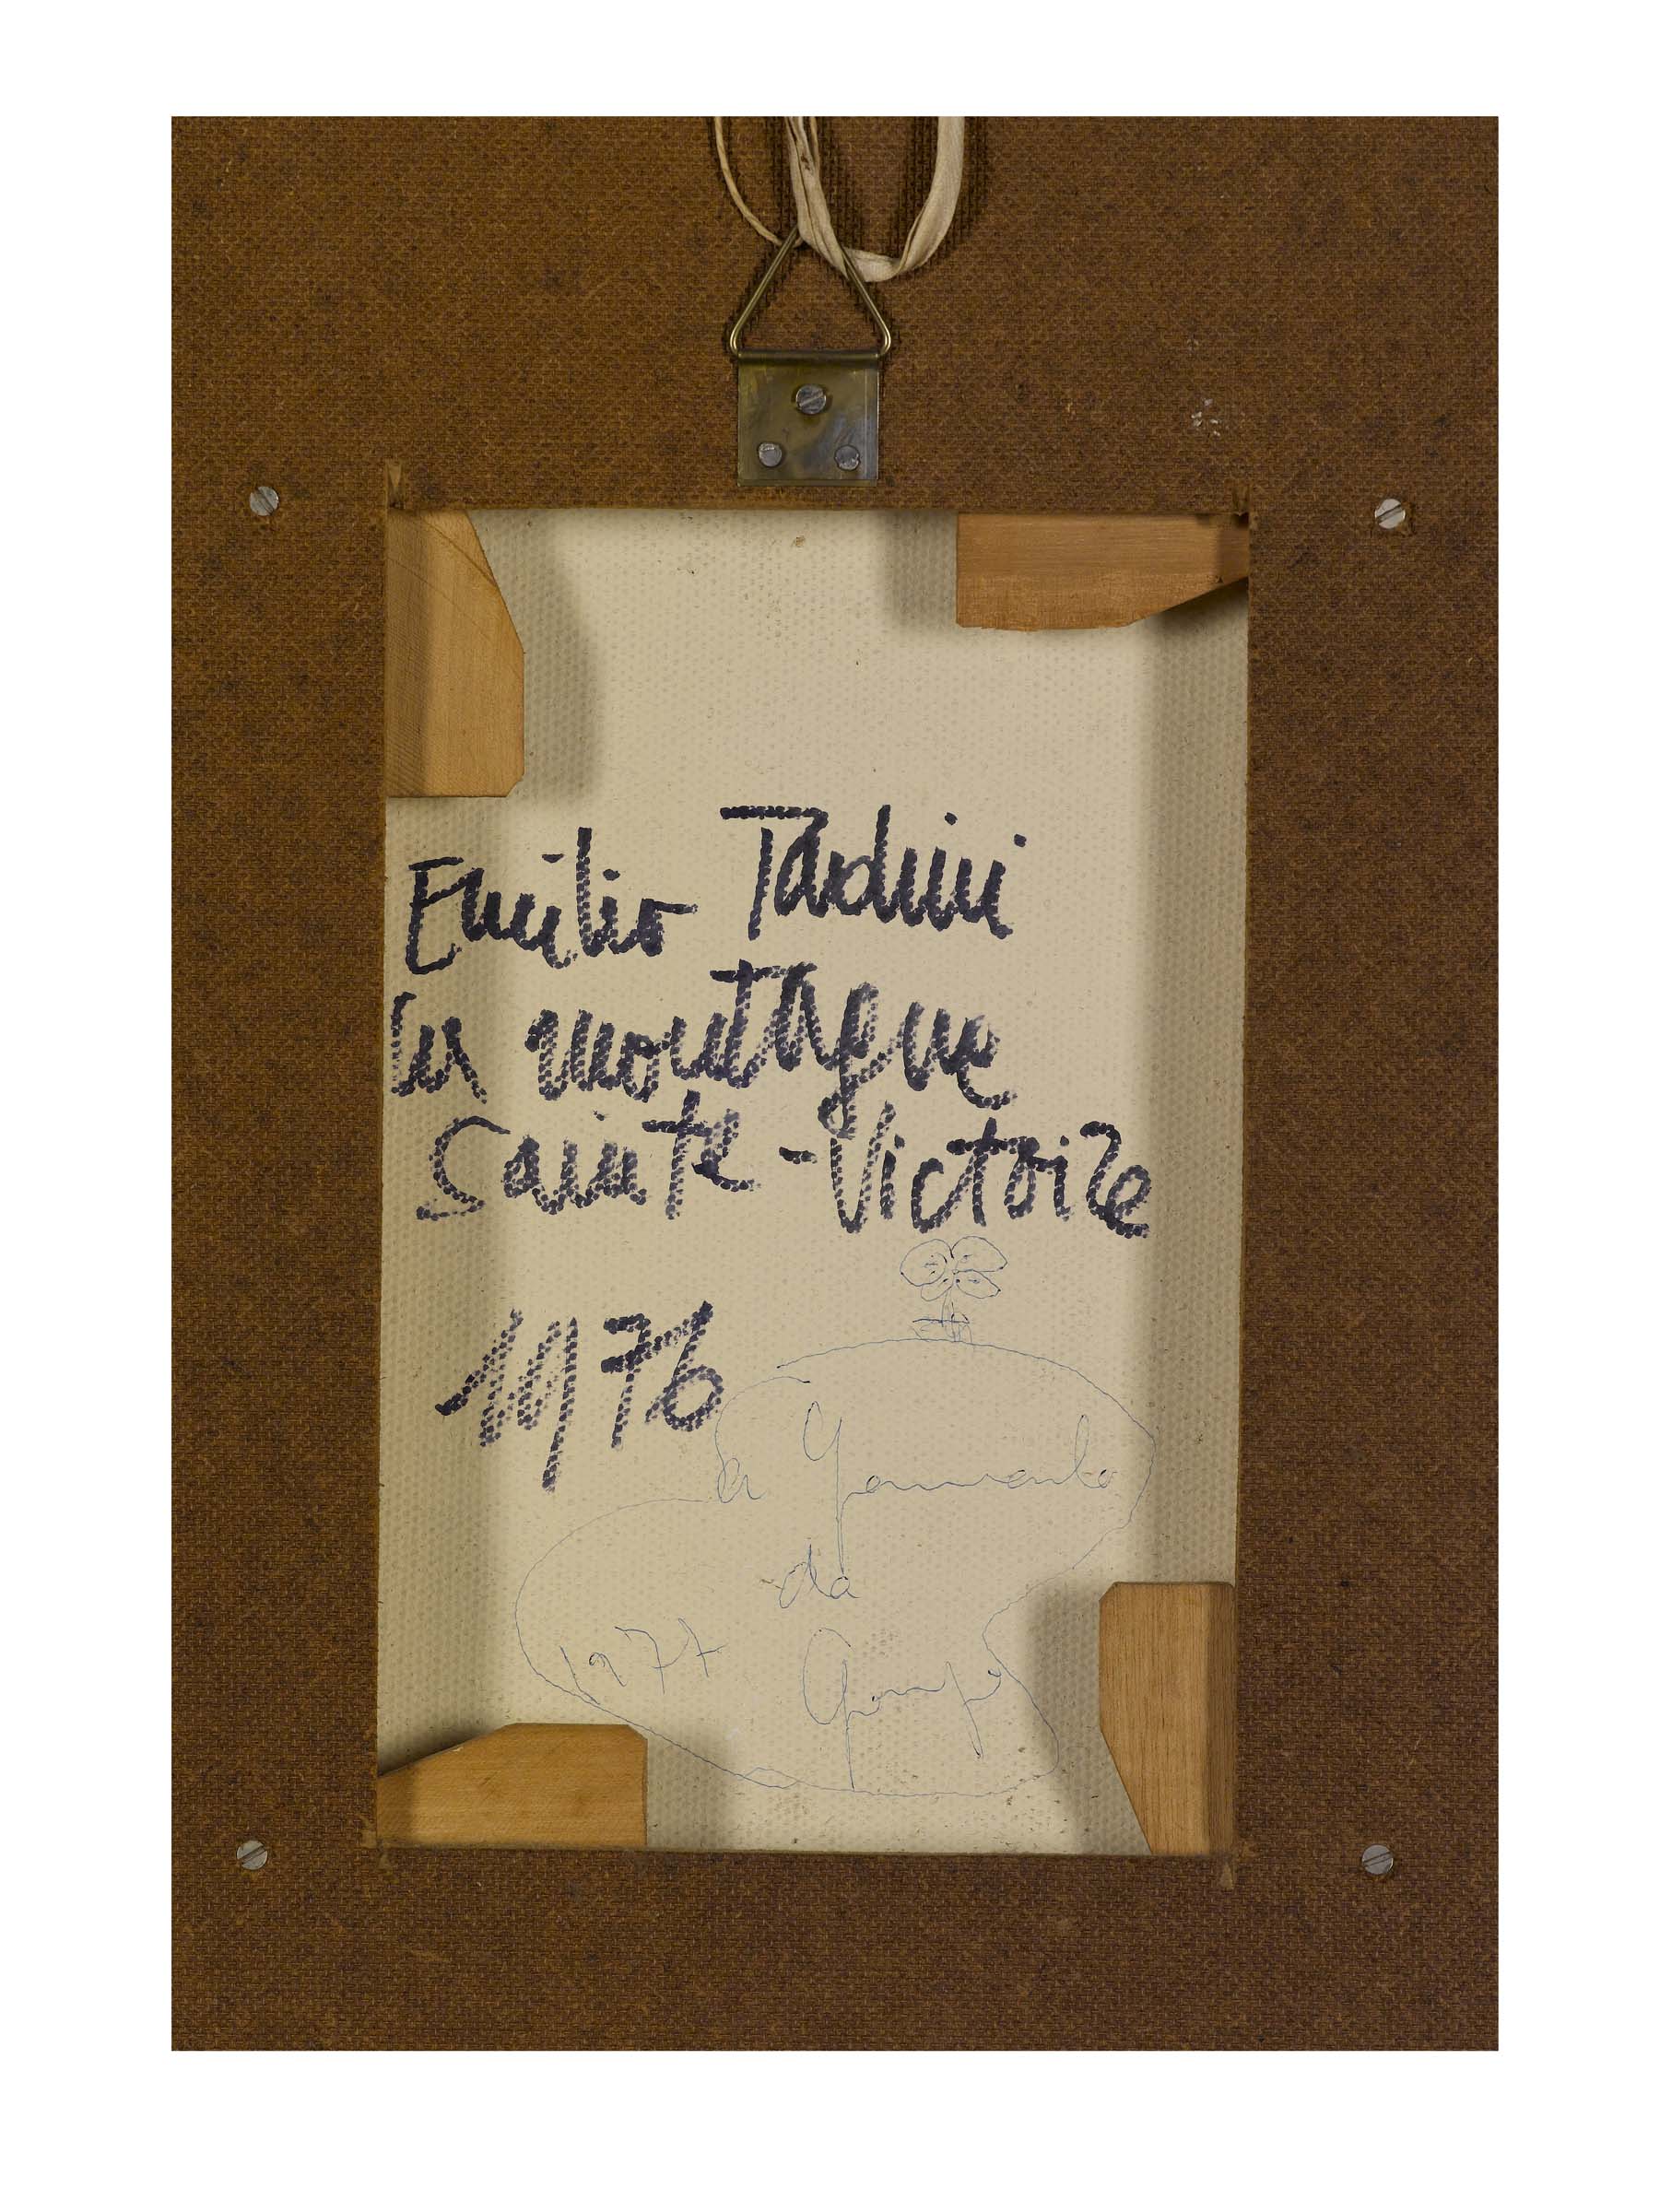 Emilio Tadini
la montagne
Sainte-Victoire
1976
a
da
1977